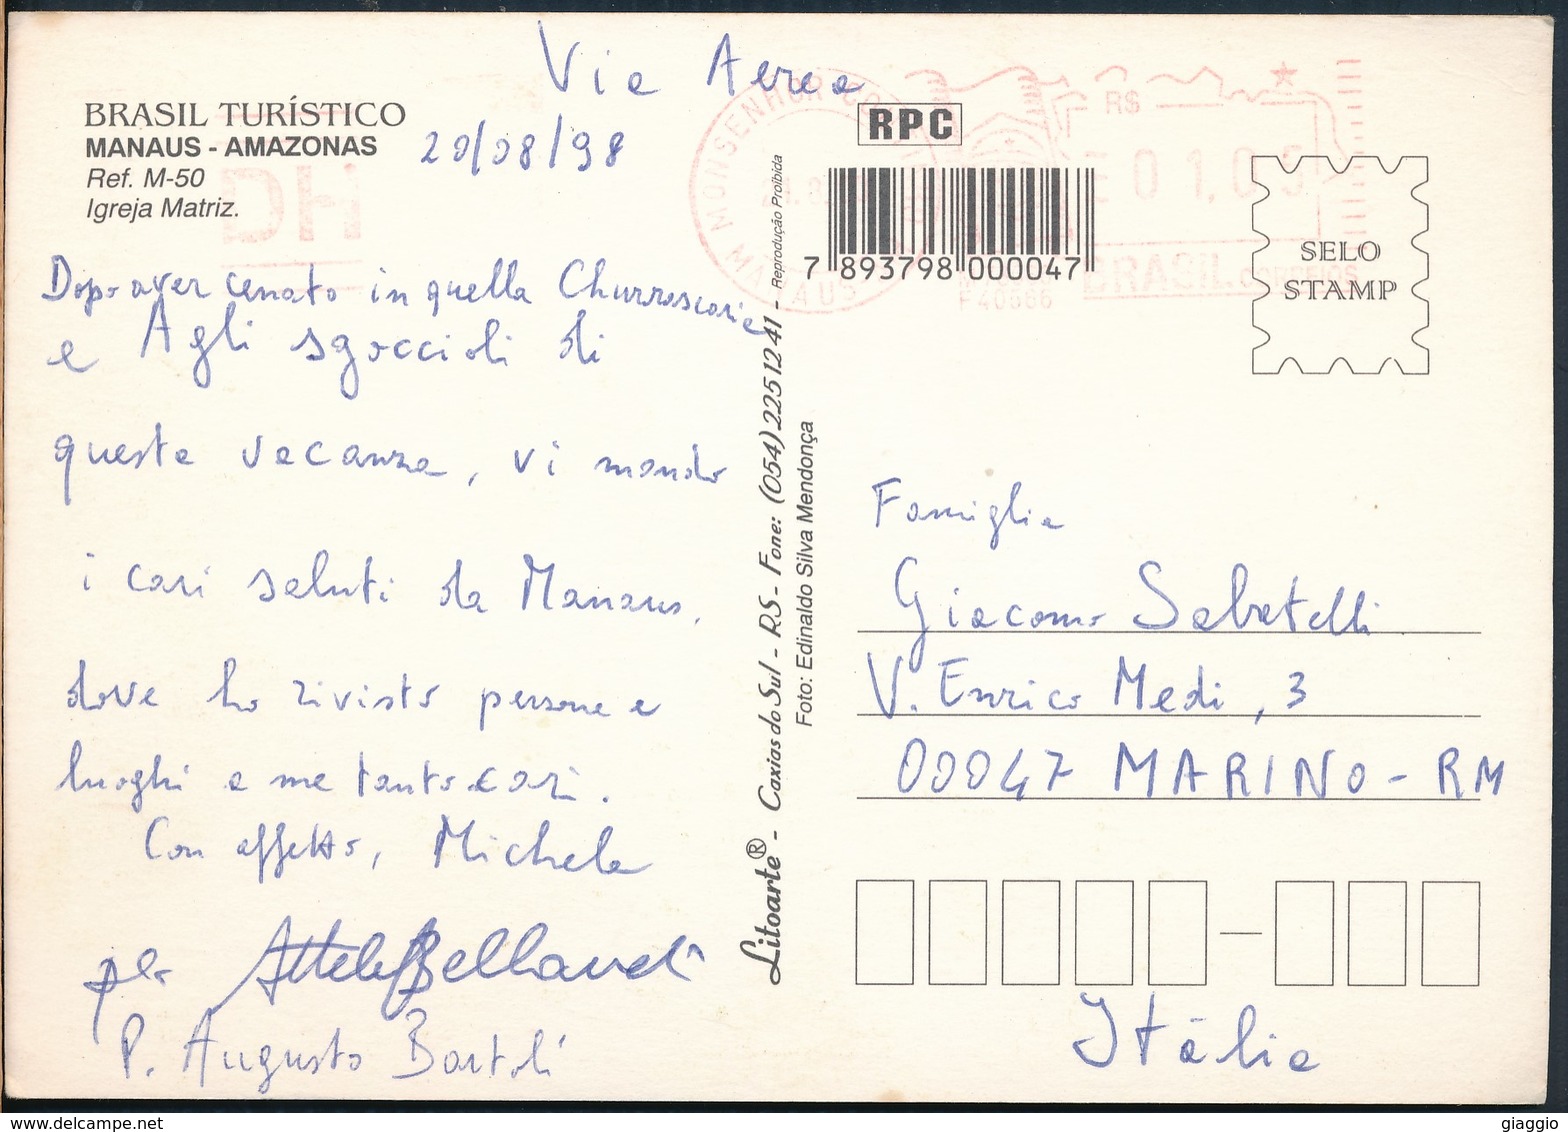 Via Aerea
BRASIL TURÍSTICO
MANAUS - AMAZONAS
Ref. M-50
Igreja Matriz.
20/08/98
Dopo aver cenato in quella Churrascaria
e Agli sgoccioli di
queste vacanze, vi mando
i cari saluti da Manaus,
dove ho rivisto persone e
luoghi a me tanto cari.
Con affetto, Michele
P. Augusto Bartoli
Litoarte® - Caxias do Sul - RS - Fone: (054) 225 12 41 - Reprodução Proibida
Foto: Edinaldo Silva Mendonça
RPC
7 893798 000047
MONSENHOR
MANAUS
R$
01,05
BRASIL.CORREIOS
P 40666
DH
SELO
STAMP
Famiglia
Giacomo Sabatelli
V. Enrico Medi, 3
00047 MARINO - RM
Itália
giaggio